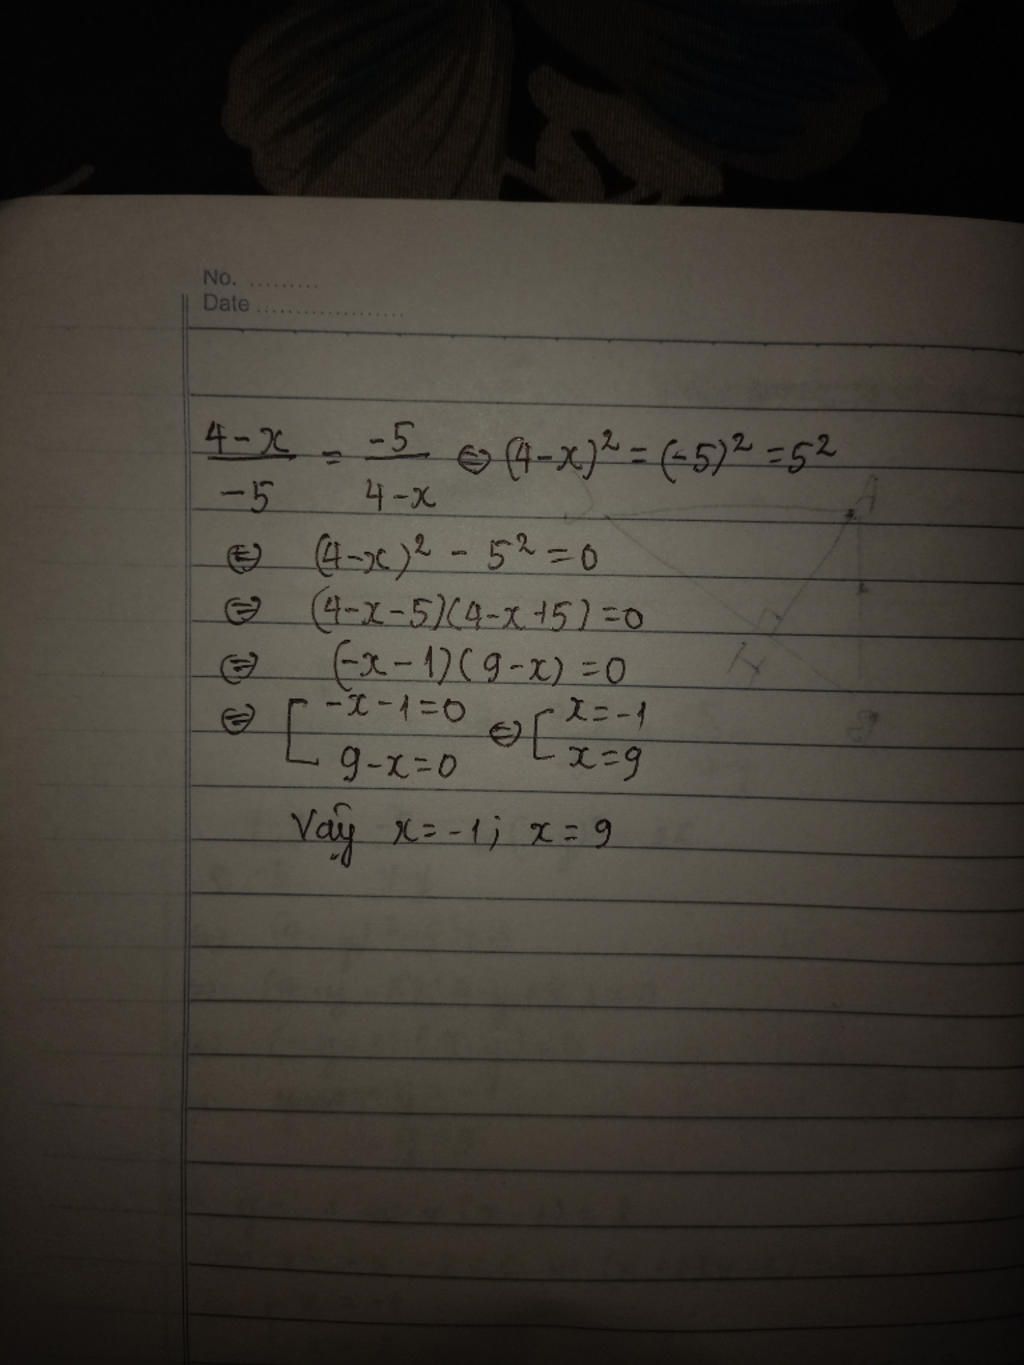 No. .........
Date ...................
4-x/-5 = -5/4-x ⇔ (4-x)² = (-5)² = 5²
⇔ (4-x)² - 5² = 0
⇔ (4-x-5)(4-x+5) = 0
⇔ (-x-1)(9-x) = 0
⇔ [ -x-1=0 ⇔ [ x=-1
9-x=0 x=9
Vậy x=-1; x=9
A
H
B